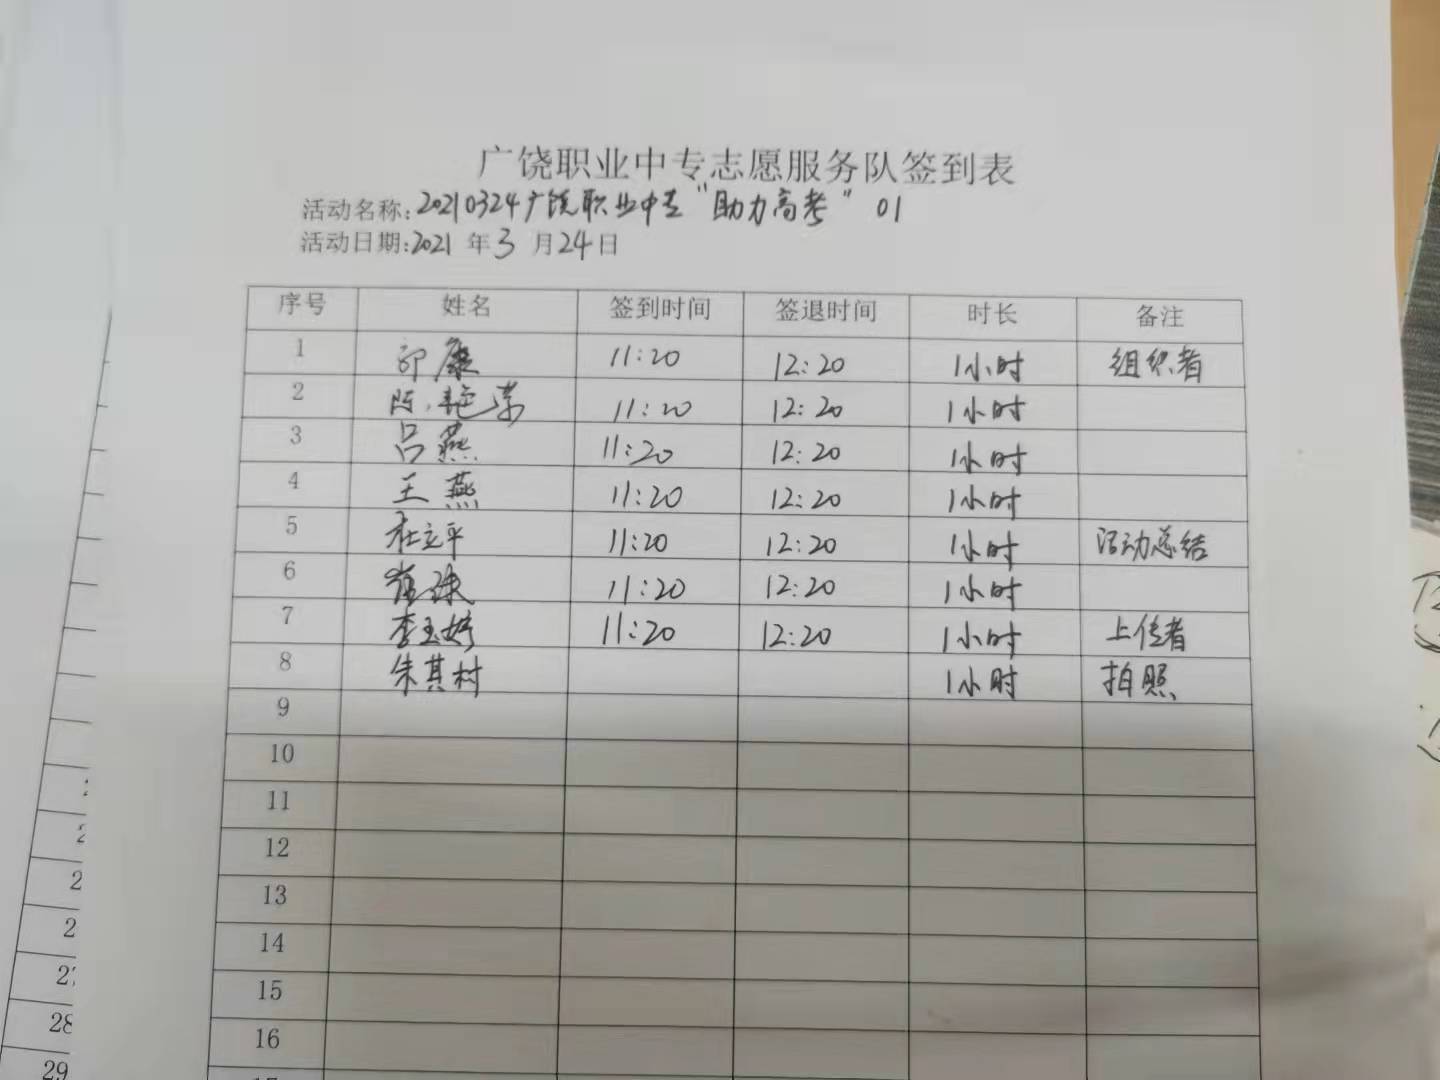 广饶职业中专志愿服务队签到表
活动名称:20210324广饶职业中专“助力高考” 01
活动日期:2021 年 3 月 24 日
序号 姓名 签到时间 签退时间 时长 备注
1 康 11:20 12:20 1小时 组织者
2 陈艳 11:20 12:20 1小时
3 吕燕 11:20 12:20 1小时
4 王燕 11:20 12:20 1小时
5 杜立平 11:20 12:20 1小时 活动总结
6 崔 11:20 12:20 1小时
7 李玉婷 11:20 12:20 1小时 上传者
8 朱其村 1小时 拍照
9
10
11
12
13
14
15
16
28
29